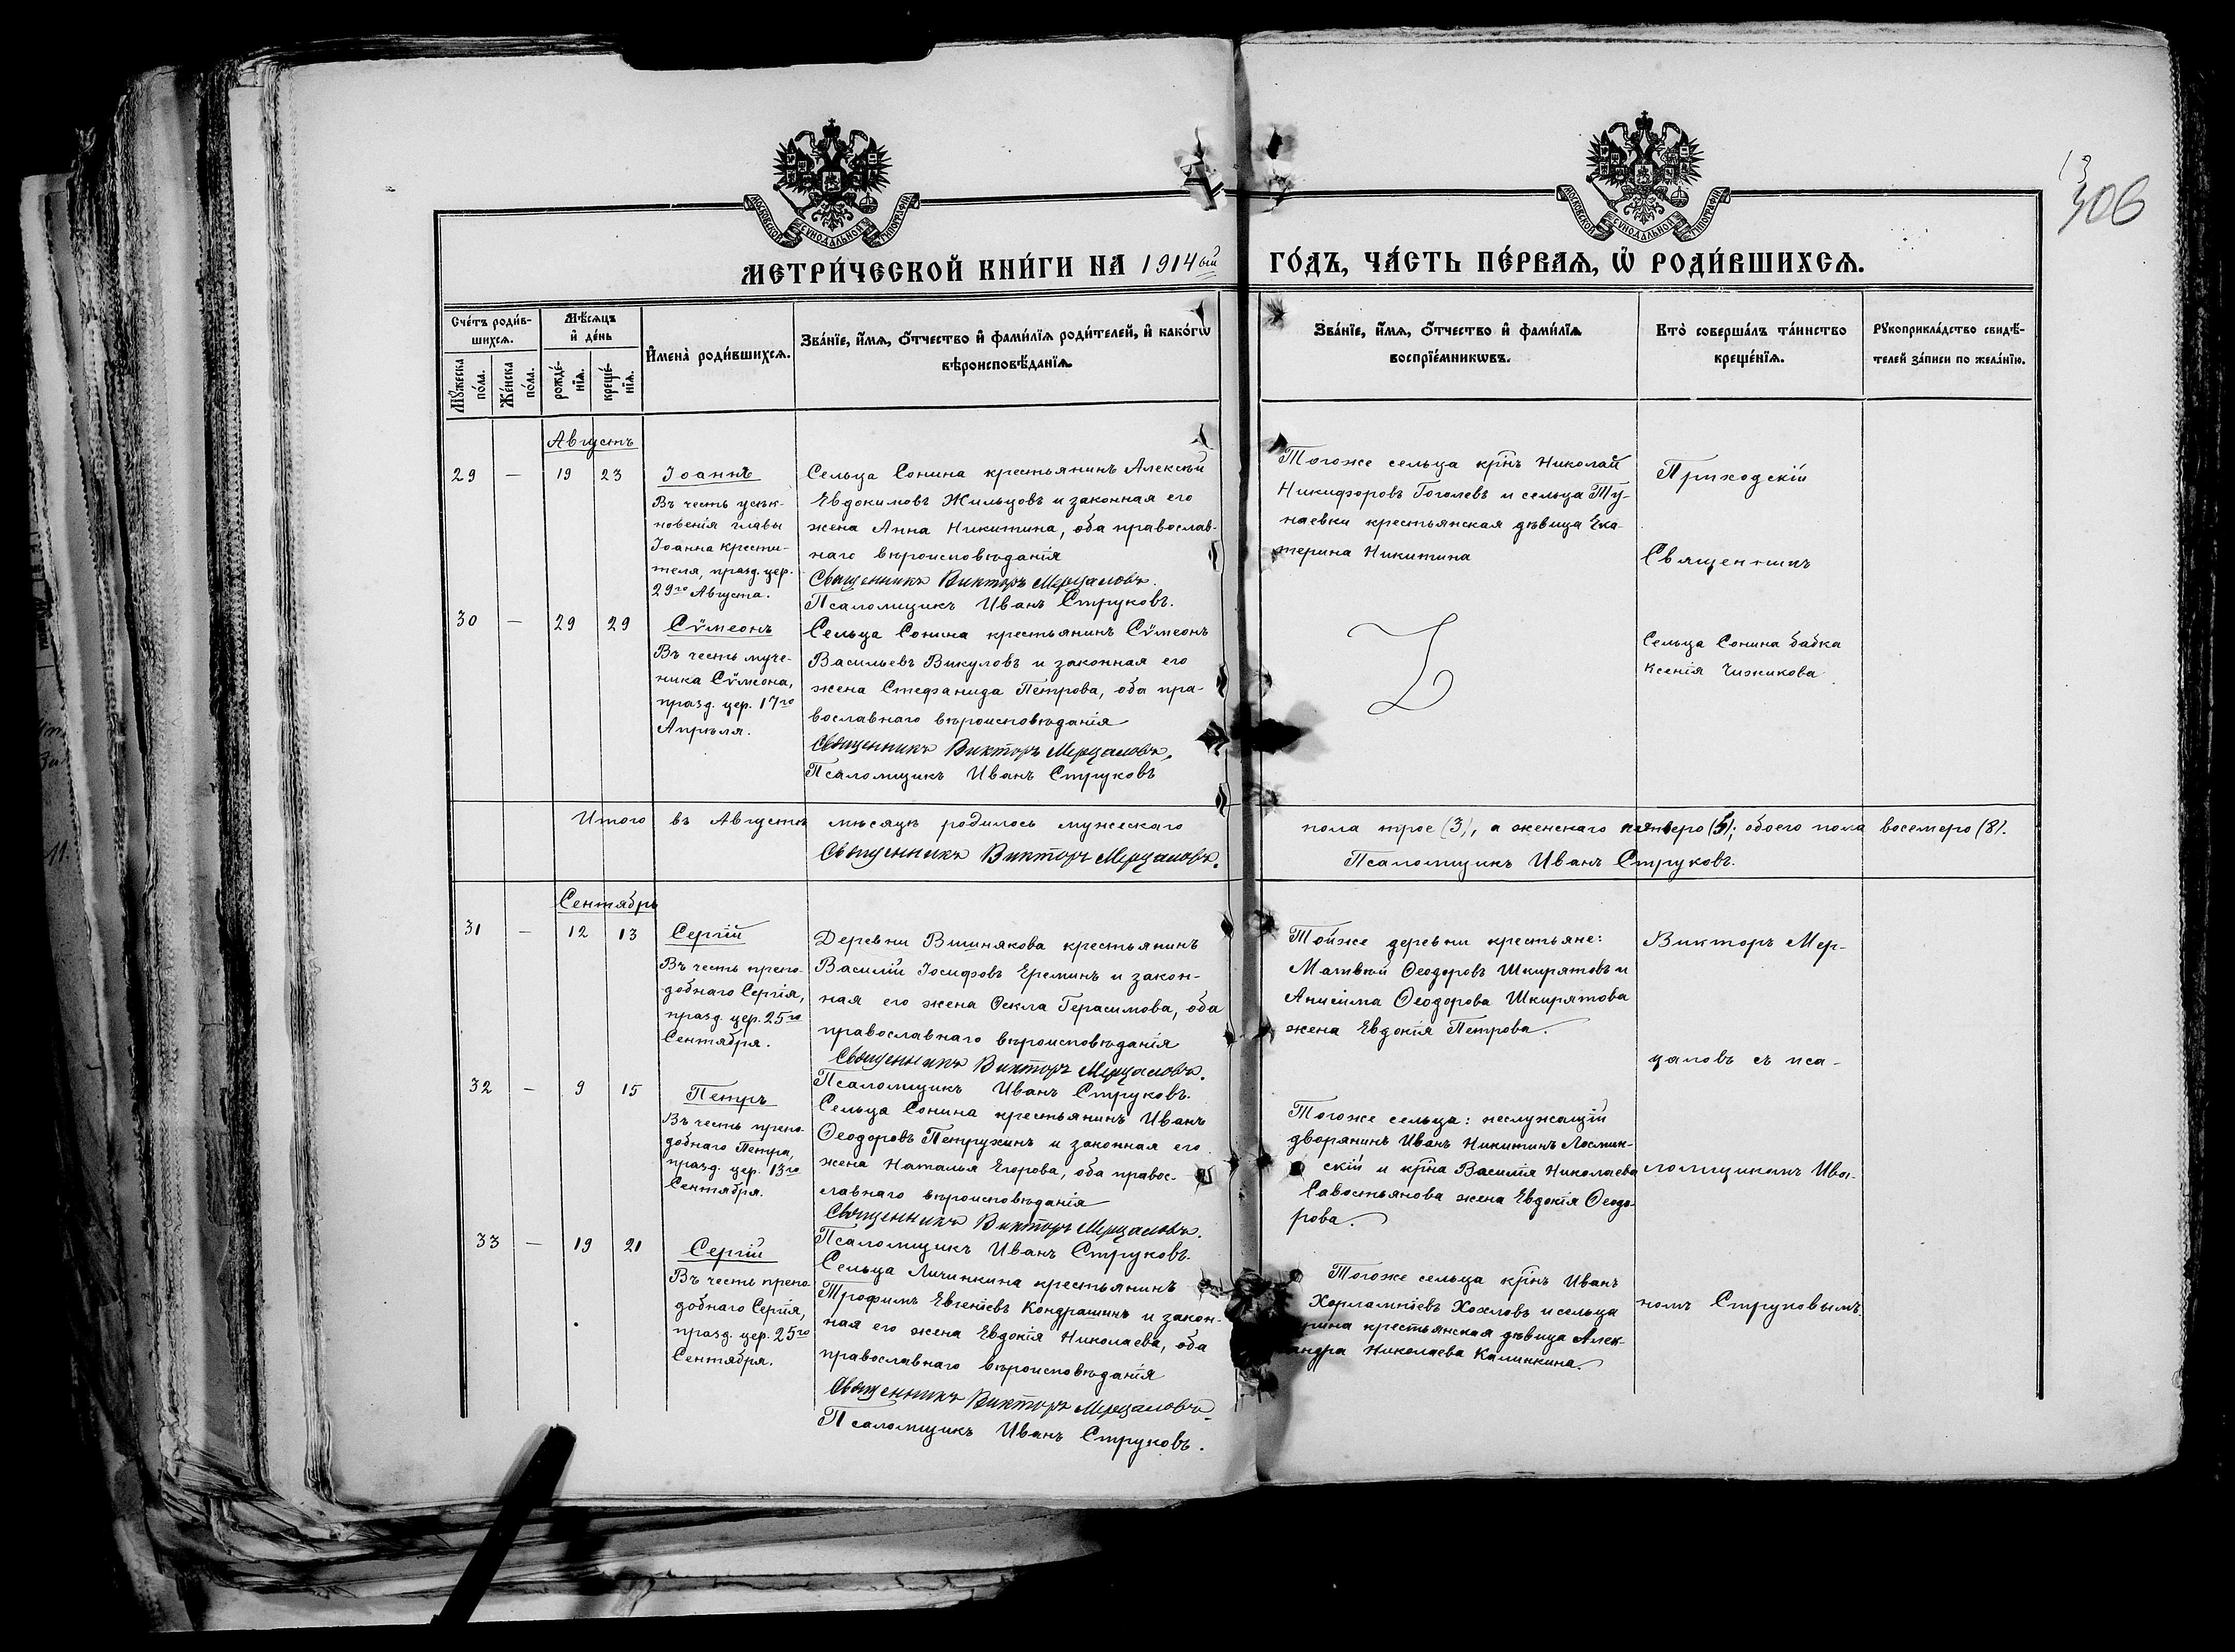 13
306
МОСКОВСКОЙ СѴНОДАЛЬНОЙ ТИПОГРАФІИ
МОСКОВСКОЙ СѴНОДАЛЬНОЙ ТИПОГРАФІИ
МЕТРИ́ЧЕСКОЙ КНИ́ГИ НА 1914ый ГО́ДЪ, ЧА́СТЬ ПЕ́РВАѦ, Ѡ҆ РОДИ́ВШИХСѦ.
Сче́тъ роди́в-
шихсѧ.
Мꙋ́жеска по́ла.
Же́нска по́ла.
Мѣ́сѧцъ
и҆ де́нь
рожде́-
нїѧ.
креще́-
нїѧ.
И҆мена̀ роди́вшихсѧ.
Зва́нїе, и҆́мѧ, ѻ҆́тчество и҆ фами́лїѧ роди́телей, и҆ како́гѡ
вѣроисповѣ́данїѧ.
Зва́нїе, и҆́мѧ, ѻ҆́тчество и҆ фами́лїѧ
воспрїе́мникѡвъ.
Кто̀ соверша́лъ та́инство
креще́нїѧ.
Рꙋкоприкла́дство свидѣ́-
телей за́писи по жела́нїю.
Августъ
29 — 19 23
Іоаннъ
Въ честь усѣк-
новенія главы
Іоанна крести-
теля, празд. цер.
29го Августа.
Сельца Сонина крестьянинъ Алексѣй
Евдокимовъ Жильцовъ и законная его
жена Анна Никитина, оба православ-
наго вѣроисповѣданія
Священникъ Викторъ Мерцаловъ.
Псаломщикъ Иванъ Струковъ.
Тогоже сельца крнъ Николай
Никифоровъ Гоголевъ и сельца Ту-
наевки крестьянская дѣвица Ека-
терина Никитина
Приходскій
Священникъ
30 — 29 29
Сѵмеонъ
Въ честь муче-
ника Сѵмеона,
празд. цер. 17го
Апрѣля.
Сельца Сонина крестьянинъ Сѵмеонъ
Васильевъ Викуловъ и законная его
жена Стефанида Петрова, оба пра-
вославнаго вѣроисповѣданія
Священникъ Викторъ Мерцаловъ.
Псаломщикъ Иванъ Струковъ
Сельца Сонина бабка
Ксенія Чижикова
Итого въ Августѣ мѣсяцѣ родилось мужескаго пола трое (3), а женскаго пятеро (5); обоего пола восемеро (8).
Священникъ Викторъ Мерцаловъ. Псаломщикъ Иванъ Струковъ.
Сентябрь
31 — 12 13
Сергій
Въ честь препо-
добнаго Сергія,
празд. цер. 25го
Сентября.
Деревни Вишнякова крестьянинъ
Василій Іосифовъ Ереминъ и закон-
ная его жена Ѳекла Герасимова, оба
православнаго вѣроисповѣданія
Священникъ Викторъ Мерцаловъ.
Псаломщикъ Иванъ Струковъ.
Тойже деревни крестьяне:
Матвѣй Ѳеодоровъ Шкирятовъ и
Анисима Ѳеодорова Шкирятова
жена Евдокія Петрова.
Викторъ Мер-
цаловъ съ пса-
32 — 9 15
Петръ
Въ честь препо-
добнаго Петра,
празд. цер. 13го
Сентября.
Сельца Сонина крестьянинъ Иванъ
Ѳеодоровъ Петрухинъ и законная его
жена Наталья Егорова, оба правос-
лавнаго вѣроисповѣданія
Священникъ Викторъ Мерцаловъ.
Псаломщикъ Иванъ Струковъ.
Тогоже сельца: неслужащій
дворянинъ Иванъ Никитинъ Лосмин-
скій и крна Василія Николаева
Савостьянова жена Евдокія Ѳеодо-
рова.
ломщикомъ Ива-
33 — 19 21
Сергій
Въ честь препо-
добнаго Сергія,
празд. цер. 25го
Сентября.
Сельца Личинкина крестьянинъ
Трофимъ Евгеніевъ Кондрашинъ и закон-
ная его жена Евдокія Николаева, оба
православнаго вѣроисповѣданія
Священникъ Викторъ Мерцаловъ.
Псаломщикъ Иванъ Струковъ.
Тогоже сельца крнъ Иванъ
Харлампіевъ Хохловъ и сельца
крестьянская дѣвица Алек-
сандра Николаева Калинкина.
номъ Струковымъ.